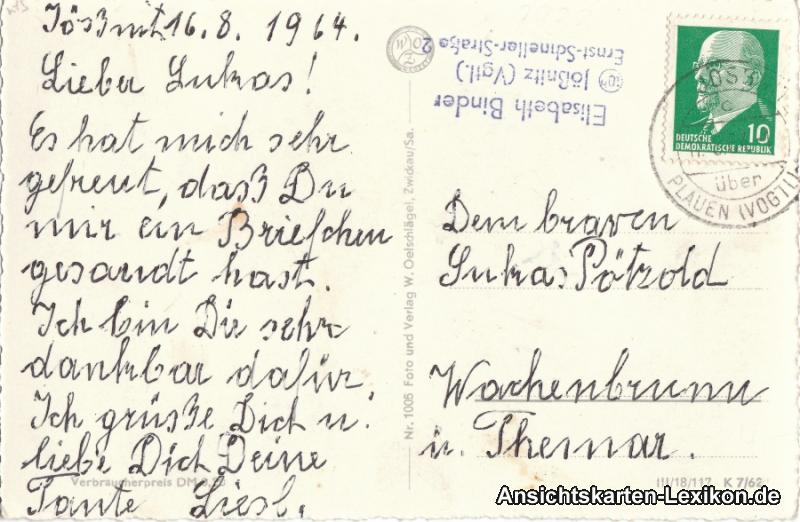 Jößnitz 16.8.1964.
Lieber Lukas!
Es hat mich sehr
gefreut, dasz Du
mir ein Briefchen
gesandt hast.
Ich bin Dir sehr
dankbar dafür.
Ich grüße Dich u.
liebe Dich Deine
Tante Liesl.
Verbraucherpreis DM
Nr. 1005 Foto und Verlag W. Oelschlägel, Zwickau/Sa.
Elisabeth Binder
Jößnitz (Vgtl.)
Ernst-Schneller-Straße 2
DEUTSCHE
DEMOKRATISCHE REPUBLIK
10
über
PLAUEN (VOGTL)
Dem braven
Lukas Pötzold
Wachenbrunn
u. Themar.
III/18/117 K 7/62
Ansichtskarten-Lexikon.de